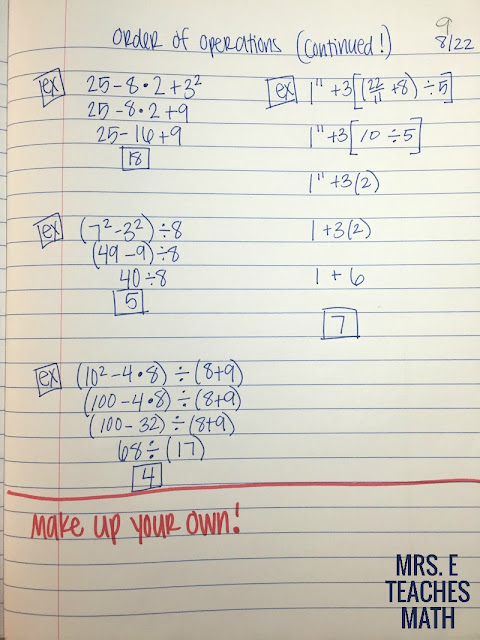 9
order of operations (continued!) 8/22
ex 25-8•2+3²
25-8•2+9
25-16+9
18
ex 1¹¹+3[(22/11+8)÷5]
1¹¹+3[10÷5]
1¹¹+3(2)
1+3(2)
1+6
7
ex (7²-3²)÷8
(49-9)÷8
40÷8
5
ex (10²-4•8)÷(8+9)
(100-4•8)÷(8+9)
(100-32)÷(8+9)
68÷(17)
4
make up your own!
MRS. E
TEACHES
MATH